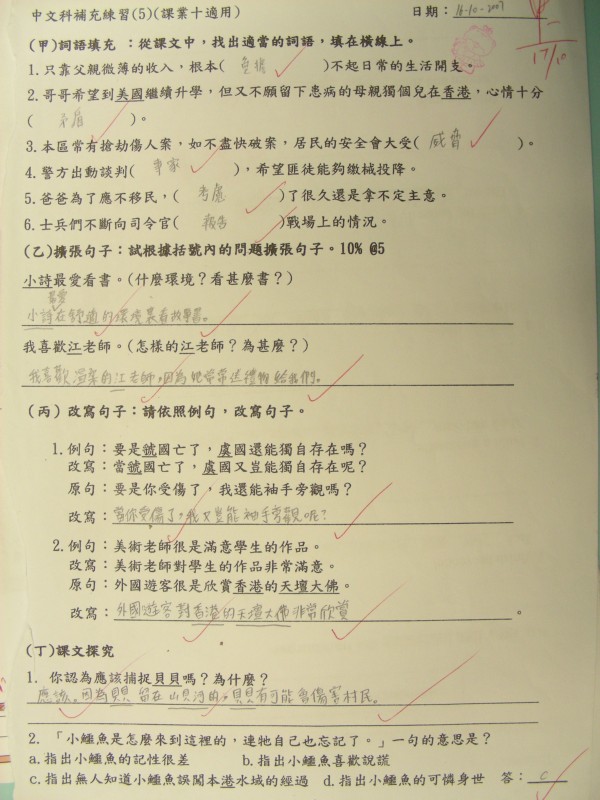 中文科補充練習(5)(課業十適用) 日期：16-10-2007
17/18
(甲)詞語填充：從課文中，找出適當的詞語，填在橫線上。
1.只靠父親微薄的收入，根本( 負擔 )不起日常的生活開支。
2.哥哥希望到美國繼續升學，但又不願留下患病的母親獨個兒在香港，心情十分
( 矛盾 )。
3.本區常有搶劫傷人案，如不盡快破案，居民的安全會大受( 威脅 )。
4.警方出動談判( 專家 )，希望匪徒能夠繳械投降。
5.爸爸為了應不移民，( 考慮 )了很久還是拿不定主意。
6.士兵們不斷向司令官( 報告 )戰場上的情況。
(乙)擴張句子：試根據括號內的問題擴張句子。10% @5
小詩最愛看書。(什麼環境？看甚麼書？)
最愛
小詩在舒適的環境裏看故事書。
我喜歡江老師。(怎樣的江老師？為甚麼？)
我喜歡溫柔的江老師，因為她常常送禮物給我們。
(丙) 改寫句子：請依照例句，改寫句子。
1.例句：要是虢國亡了，虞國還能獨自存在嗎？
改寫：當虢國亡了，虞國又豈能獨自存在呢？
原句：要是你受傷了，我還能袖手旁觀嗎？
改寫：當你受傷了，我又豈能袖手旁觀呢？
2.例句：美術老師很是滿意學生的作品。
改寫：美術老師對學生的作品非常滿意。
原句：外國遊客很是欣賞香港的天壇大佛。
改寫：外國遊客對香港的天壇大佛非常欣賞。
(丁)課文探究
1. 你認為應該捕捉貝貝嗎？為什麼？
應該。因為貝貝留在山貝河的，貝貝有可能會傷害村民。
2. 「小鱷魚是怎麼來到這裡的，連牠自己也忘記了。」一句的意思是？
a.指出小鱷魚的記性很差 b.指出小鱷魚喜歡說謊
c.指出無人知道小鱷魚誤闖本港水域的經過 d.指出小鱷魚的可憐身世 答：c